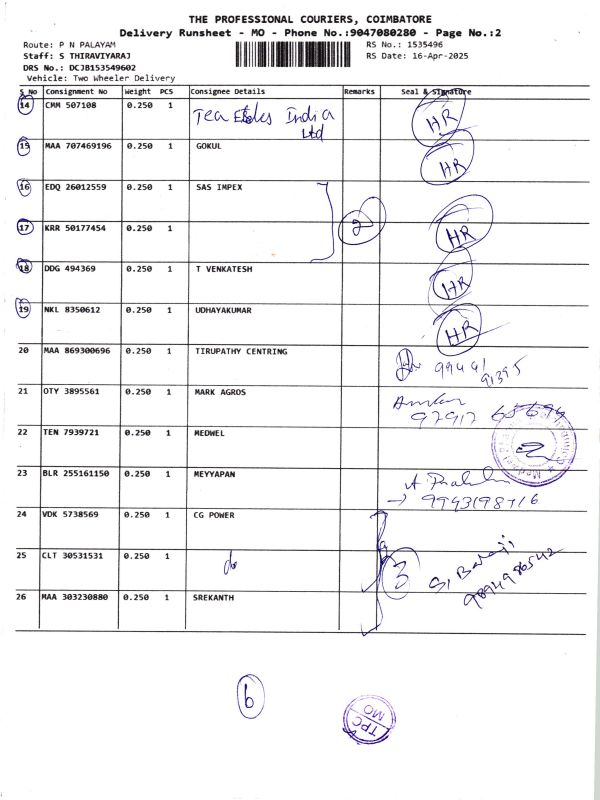 THE PROFESSIONAL COURIERS, COIMBATORE
Delivery Runsheet - MO - Phone No.:9047080280 - Page No.:2
Route: P N PALAYAM RS No.: 1535496
Staff: S THIRAVIYARAJ RS Date: 16-Apr-2025
DRS No.: DCJB153549602
Vehicle: Two Wheeler Delivery
S No Consignment No Weight PCS Consignee Details Remarks Seal & Signature
14 CMM 507108 0.250 1 Tea India HR
Ltd
15 MAA 707469196 0.250 1 GOKUL HR
16 EDQ 26012559 0.250 1 SAS IMPEX
17 KRR 50177454 0.250 1 2 HR
18 DDG 494369 0.250 1 T VENKATESH HR
19 NKL 8350612 0.250 1 UDHAYAKUMAR HR
20 MAA 869300696 0.250 1 TIRUPATHY CENTRING 99441
91395
21 OTY 3895561 0.250 1 MARK AGROS
97917 65694
22 TEN 7939721 0.250 1 MEDWEL
23 BLR 255161150 0.250 1 MEYYAPAN
24 VDK 5738569 0.250 1 CG POWER
25 CLT 30531531 0.250 1 do 3 S. Balaji
9894986542
26 MAA 303230880 0.250 1 SREKANTH
6
TPC
MO